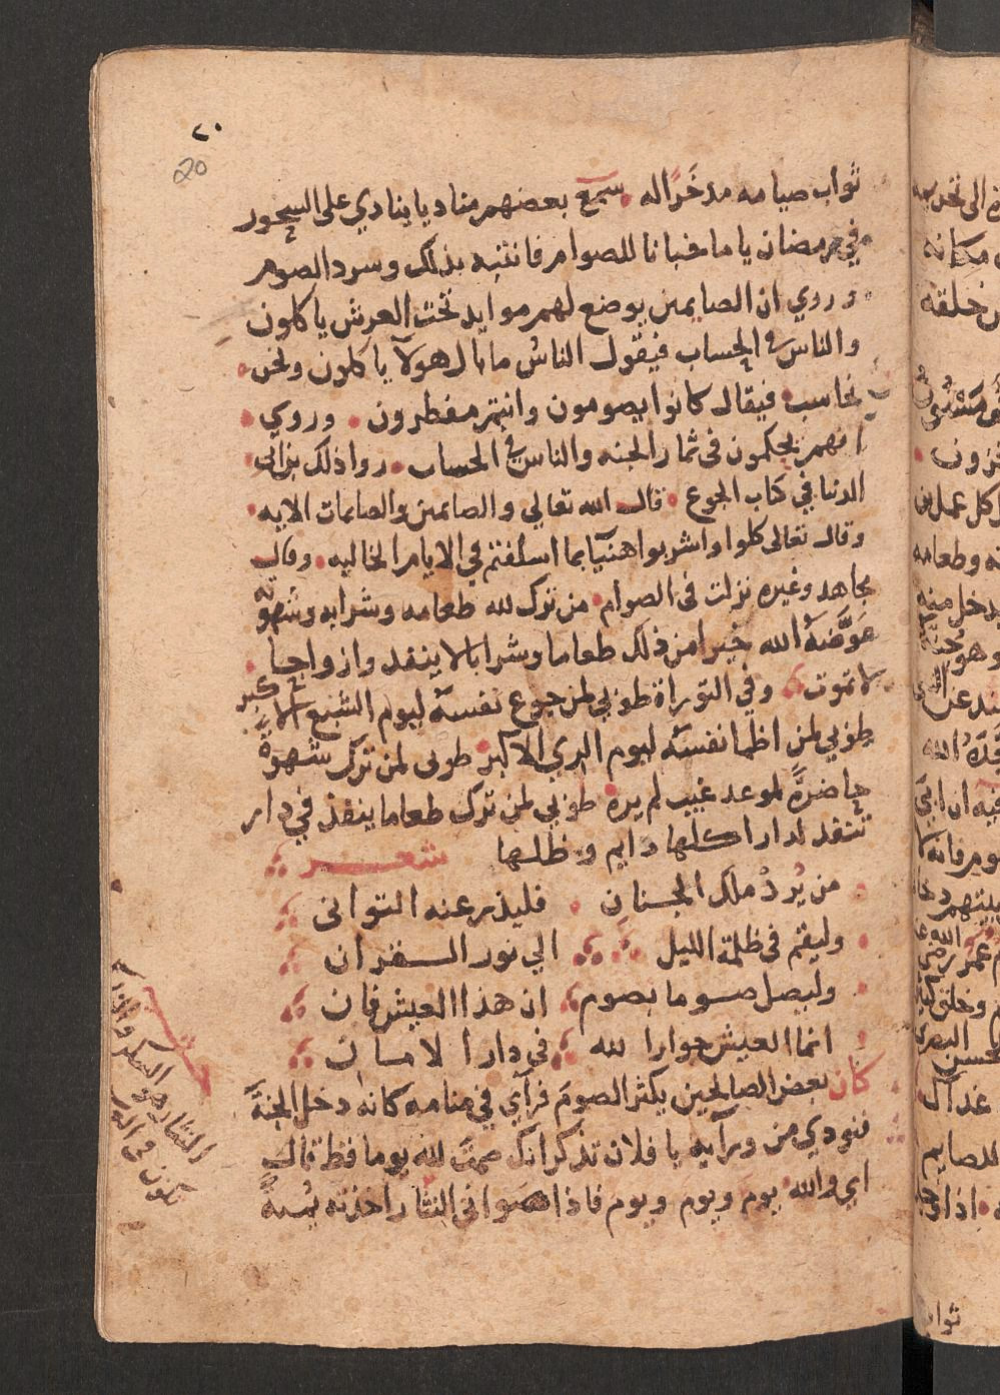 ٢٠
20
ثواب صيامه مدخرًا له سمع بعضهم مناديا ينادي على السحور
في رمضان يا ما خبانا للصوام فانتبه بذلك وسرد الصوم
وروي ان الصايمين يوضع لهم موايد تحت العرش ياكلون
والناس في الحساب فيقول الناس ما بال هولآ ياكلون ونحن
نحاسب فيقال كانوا يصومون وانتم مفطرون وروي
انهم يحكمون في ثمار الجنه والناس في الحساب رواذلك بن ابي
الدنيا في كتاب الجوع قال الله تعالي والصايمين والصايمات الايه
وقال تعالى كلوا واشربوا هنيآ بما اسلفتم في الايام الخاليه وقال
مجاهد وغيره نزلت في الصوام من ترك لله طعامه وشرابه وشهوته
عَوَّضَهُ الله خيرا من ذلك طعاما وشرابا لا ينفد وازواجا
لا تموت وفي التوراة طوبي لمن جوع نفسه ليوم الشبع الاكبر
طوبي لمن اظمأ نفسه ليوم الري الاكبر طوبى لمن ترك شهوة
حاضرةً لموعد غيب لم يره طوبي لمن ترك طعاما ينفد في دار
تنفد لدار اكلها دايم وظلها شعر
من يُرِدْ ملك الجنان فليذر عنه التواني
وليقم في ظلمة الليل الي نور القران
وليصل صوما بصوم ان هذا العيش فان
انما العيش جوارا لله في دار الامان
كان بعض الصالحين يكثر الصوم فرآي في منامه كانه دخل الجنة
فنودي من ورآيه يا فلان تذكر انك صمت لله يوما قط قال
اي والله يوم ويوم ويوم فاذا صواني النثار اخذته يمنة
النثار هو السكر